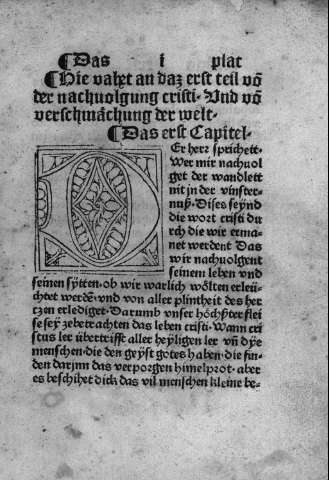 ¶Das i plat
¶Hie vahet an daz erst teil võ
der nachuolgung cristi· Vnd võ
verschmächung der welt·
¶Das erst Capitel·
Er herr sprichett·
Wer mir nachuol
get der wandlett
nit in der vinster-
nuß· Dises seynd
die wort cristi du
rch die wir erma-
net werdent Das
wir nachuolgent
seinem leben vnd
seinen sytten· ob wir warlich wölten erleü-
chtet werdē· vnd von aller plintheit des her
tzen erlediget· Darumb vnser höchster flei
se sey ze betrachten das leben cristi· Wann cri
stus ler übertrifft aller heyligen ler vñ dye
menschen· die den geyst gotes haben· die fin-
den darjnn das verporgen himelprot· aber
es beschihet dick das vil menschen kleine be-